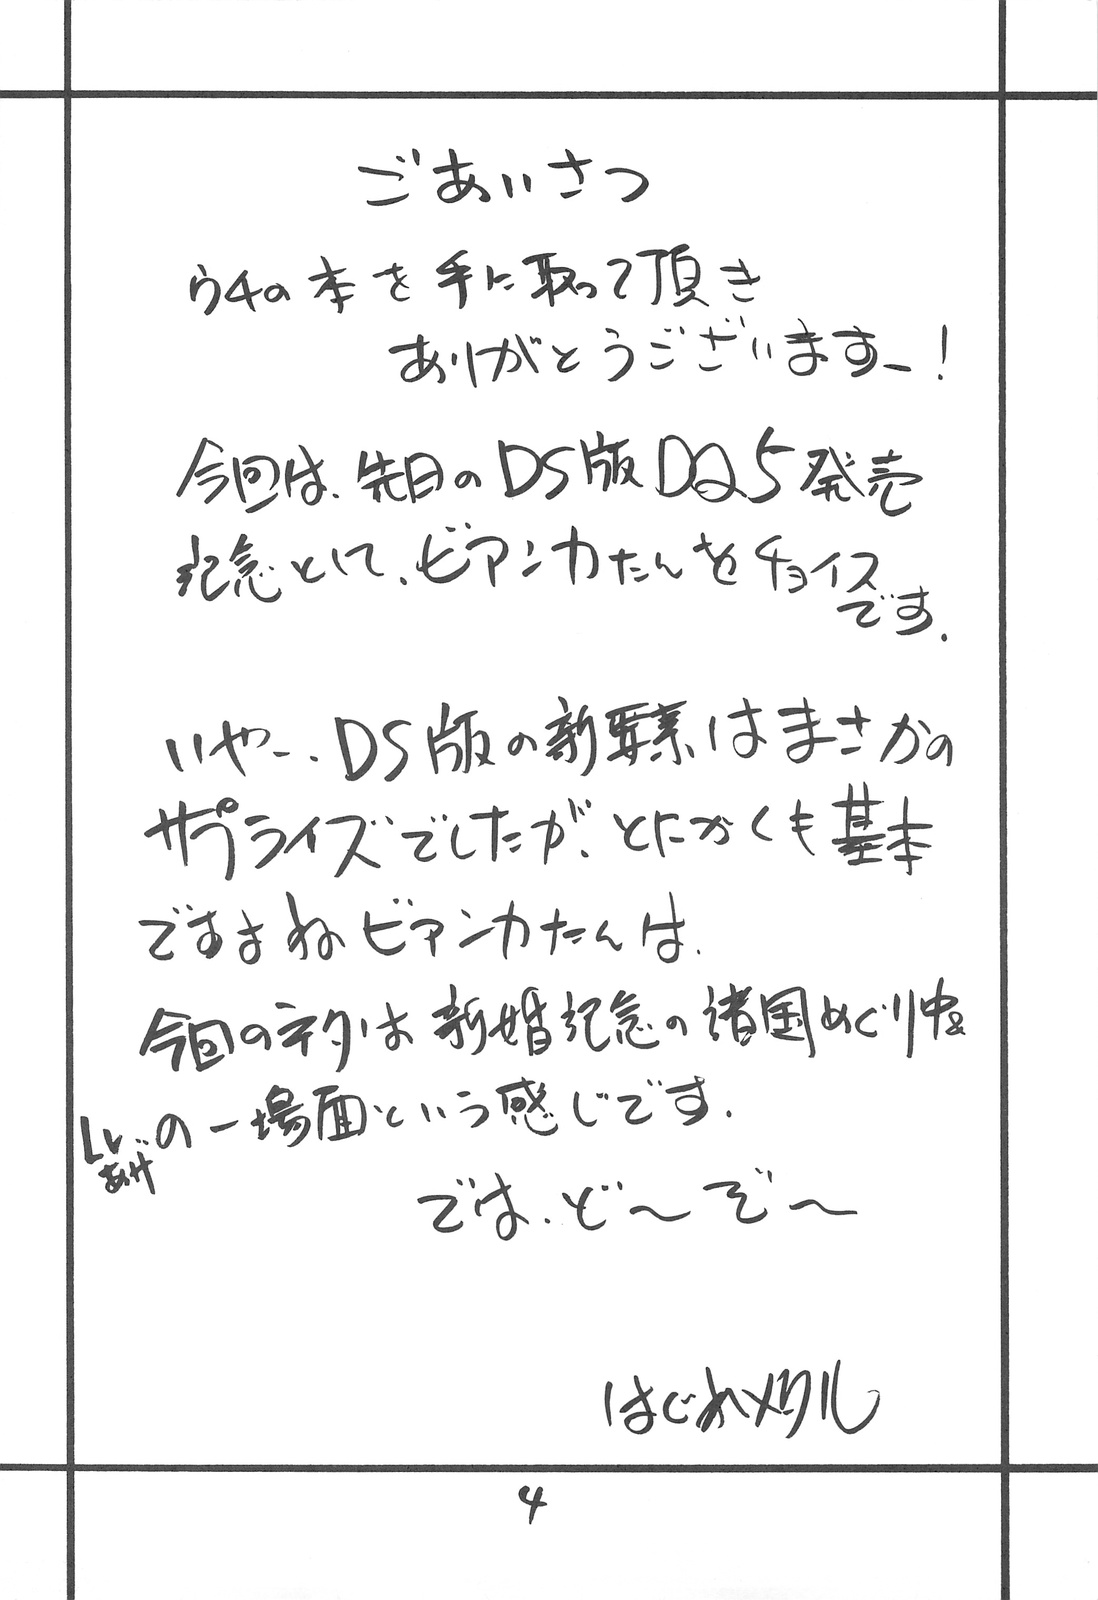 ごあいさつ
ウチの本を手に取って頂き
ありがとうございますー!
今回は、先日のDS版DQ5発売
記念として、ビアンカたんをチョイス
です.
いやー、DS版の新要素はまさかの
サプライズでしたが、とにかくも基本
ですよねビアンカたんは.
今回のネタは新婚記念の諸国めぐり中&
Lvあげの一場面という感じです.
では、ど〜ぞ〜
はじめメタル
4